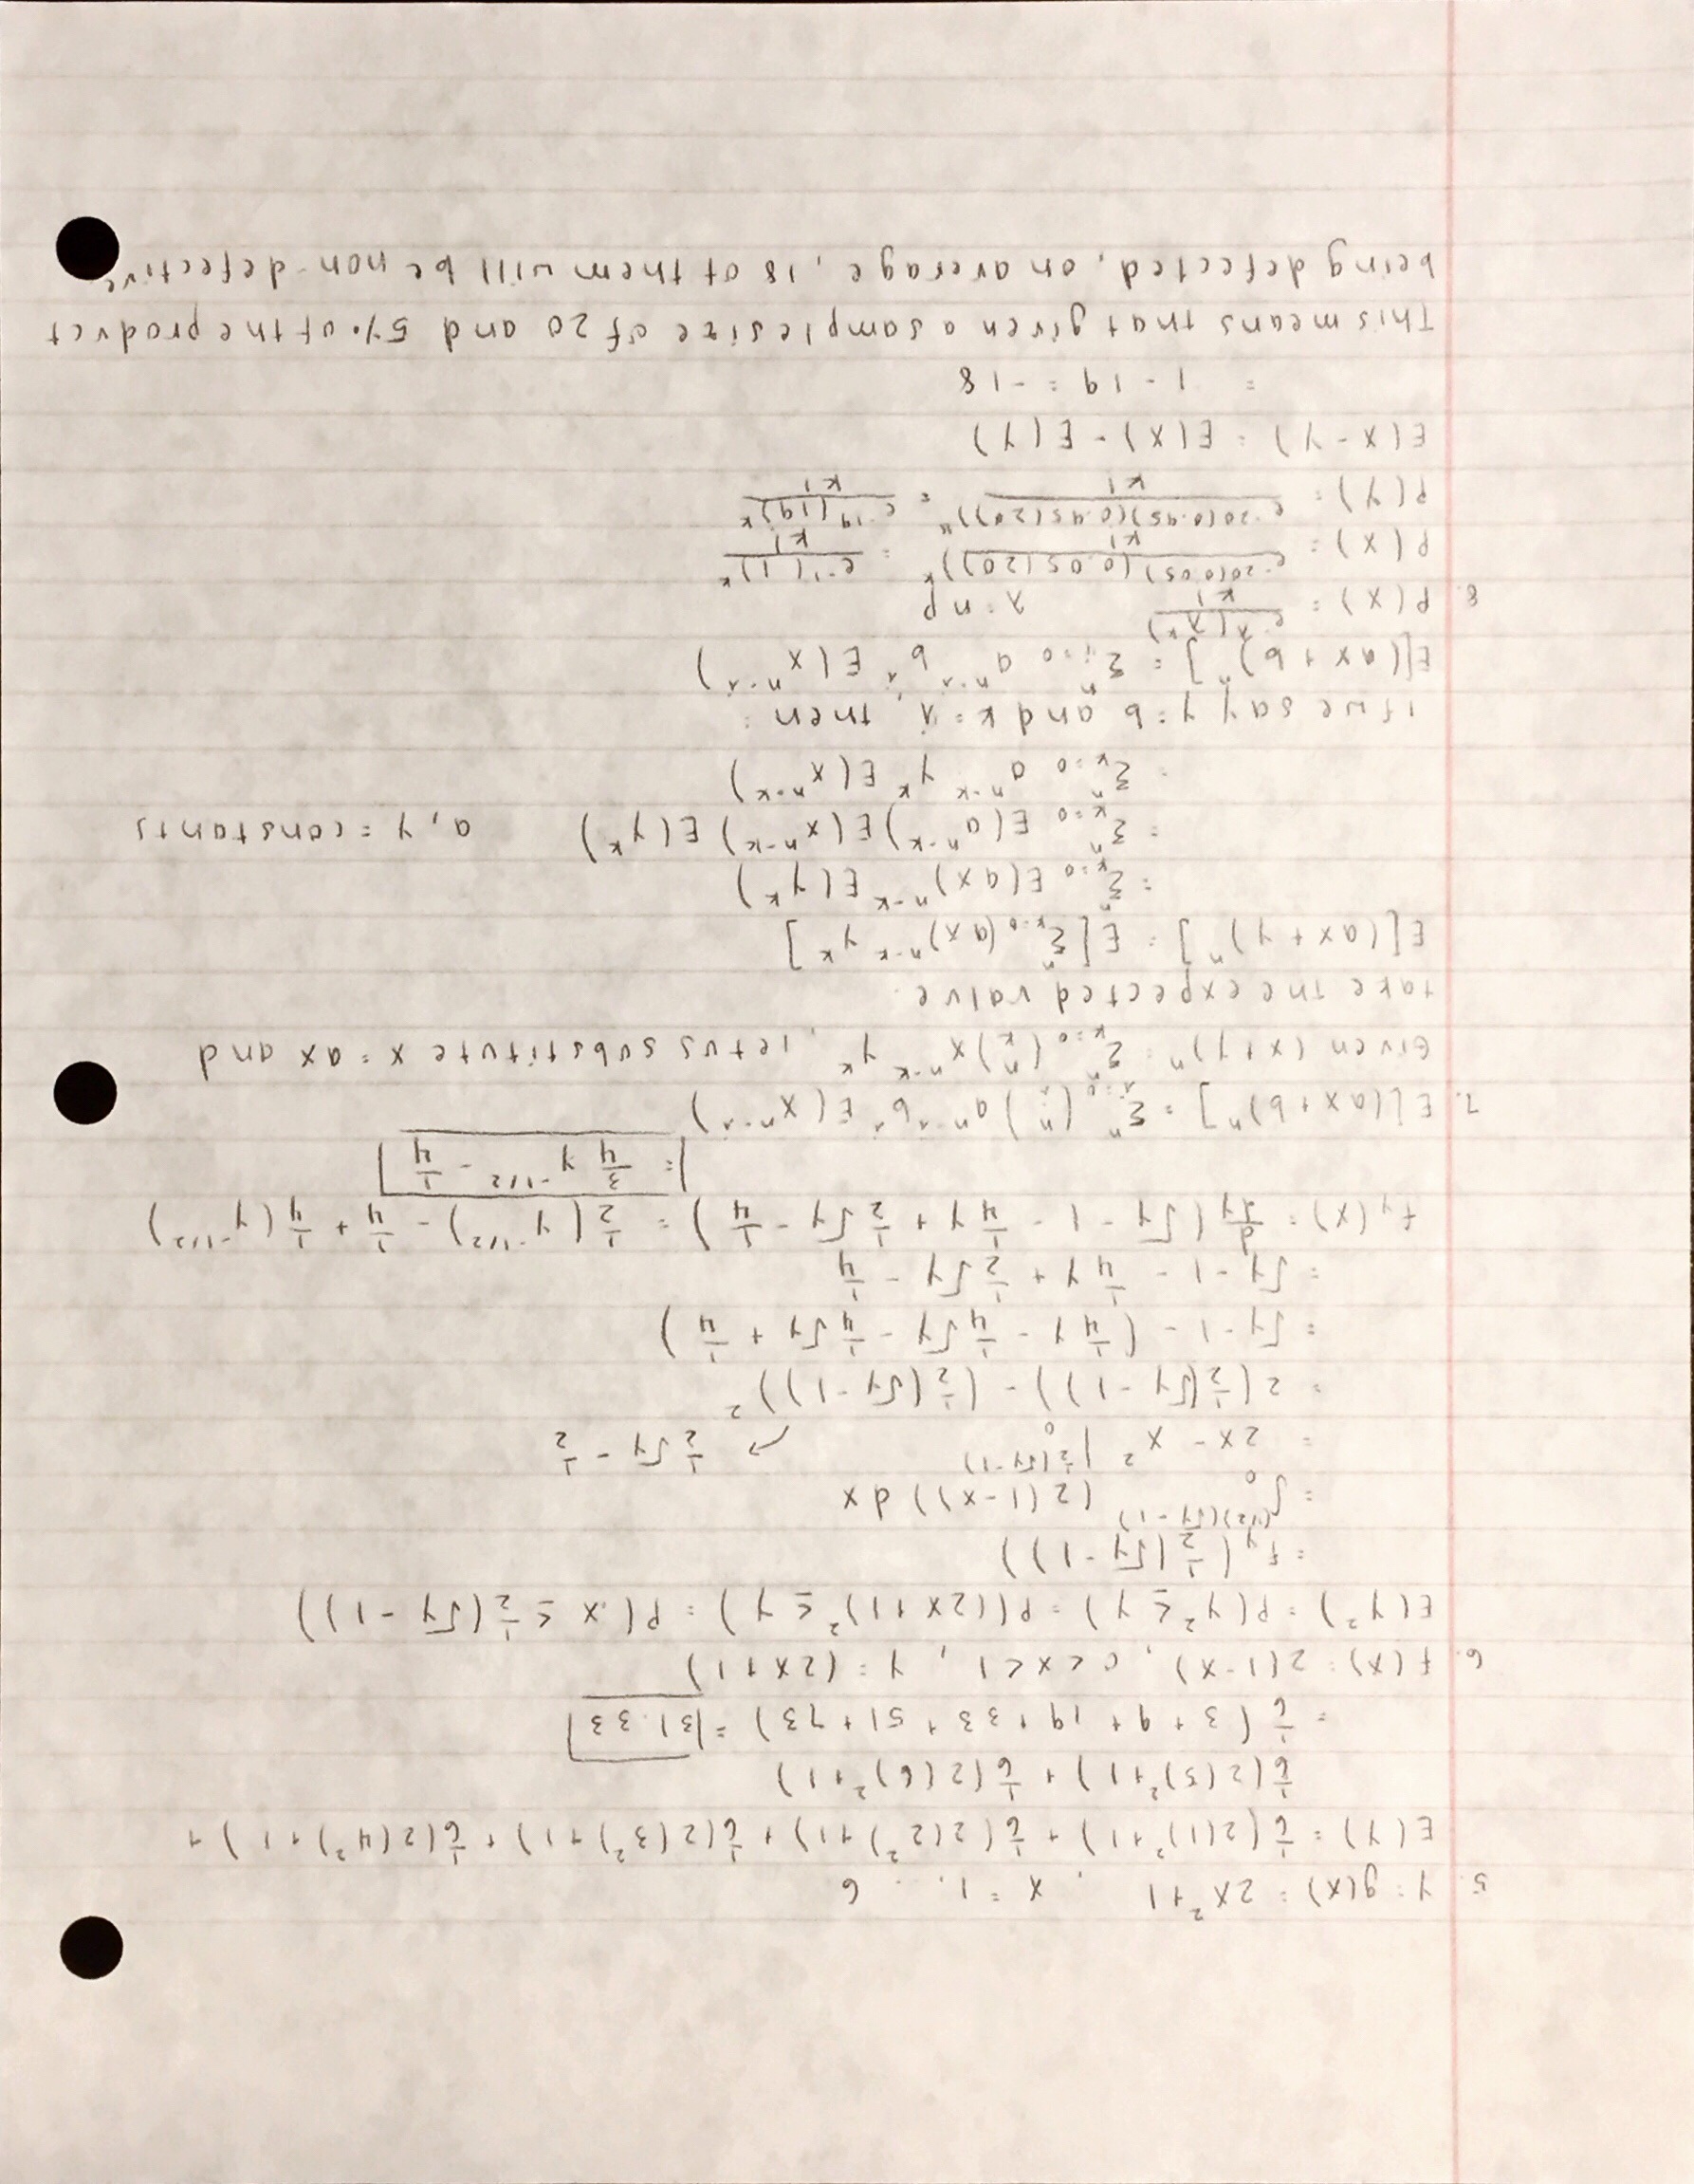 5. Y = g(x) = 2x²+1, x = 1, ..., 6
E(Y) = 1/6(2(1)²+1) + 1/6(2(2²)+1) + 1/6(2(3²)+1) + 1/6(2(4²)+1) +
1/6(2(5)²+1) + 1/6(2(6)²+1)
= 1/6(3+9+19+33+51+73) = 31.33
6. f(x) = 2(1-x), 0<x<1, Y = (2x+1)
E(Y²) = P(Y² ≤ y) = P((2x+1)² ≤ y) = P(x ≤ 1/2(√y - 1))
= fy(1/2(√y - 1))
= ∫₀^((1/2)(√y-1)) (2(1-x)) dx
= 2x - x² |₀^(1/2(√y-1)) ↙ 1/2√y - 1/2
= 2(1/2(√y - 1)) - (1/2(√y-1))²
= √y - 1 - (1/4y - 1/4√y - 1/4√y + 1/4)
= √y - 1 - 1/4y + 1/2√y - 1/4
fy(x) = d/dy(√y - 1 - 1/4y + 1/2√y - 1/4) = 1/2(y^(-1/2)) - 1/4 + 1/4(y^(-1/2))
= 3/4 y^(-1/2) - 1/4
7. E[(ax+b)ⁿ] = Σⁿᵢ₌₀ (n i) aⁿ⁻ⁱ bⁱ E(xⁿ⁻ⁱ)
Given (x+y)ⁿ = Σⁿₖ₌₀ (n k) xⁿ⁻ᵏ yᵏ, let us substitute x = ax and
take the expected value.
E[(ax+y)ⁿ] = E[Σⁿₖ₌₀ (ax)ⁿ⁻ᵏ yᵏ]
= Σⁿₖ₌₀ E(ax)ⁿ⁻ᵏ E(yᵏ)
= Σⁿₖ₌₀ E(aⁿ⁻ᵏ) E(xⁿ⁻ᵏ) E(yᵏ) a, y = constants
= Σⁿₖ₌₀ aⁿ⁻ᵏ yᵏ E(xⁿ⁻ᵏ)
if we say y = b and k = i, then:
E[(ax+b)ⁿ] = Σⁿᵢ₌₀ aⁿ⁻ⁱ bⁱ E(xⁿ⁻ⁱ)
8. P(X) = e^(-λ)(λᵏ)/k! λ = np
P(X) = e^(-20(0.05))(0.05(20))ᵏ/k! = e⁻¹(1)ᵏ/k!
P(Y) = e^(-20(0.95))(0.95(20))ᵏ/k! = e⁻¹⁹(19)ᵏ/k!
E(X-Y) = E(X) - E(Y)
= 1 - 19 = -18
This means that given a sample size of 20 and 5% of the product
being defected, on average, 18 of them will be non-defective